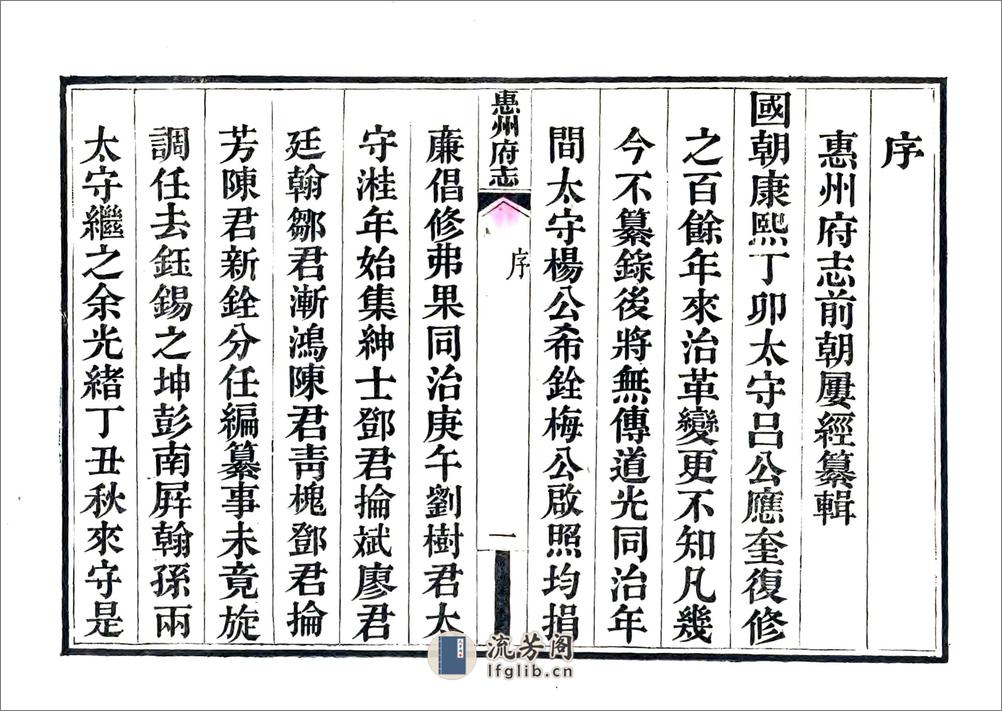 序
惠州府志前朝屢經纂輯
國朝康熙丁卯太守呂公應奎復修
之百餘年來治革變更不知凡幾
今不纂錄後將無傳道光同治年
間太守楊公希銓梅公啟照均捐
惠州府志
序
一
廉倡修弗果同治庚午劉樹君太
守溎年始集紳士鄧君掄斌廖君
廷翰鄒君漸鴻陳君靑槐鄧君掄
芳陳君新銓分任編纂事未竟旋
調任去鈺錫之坤彭南屛翰孫兩
太守繼之余光緒丁丑秋來守是
流芳阁
lfglib.cn